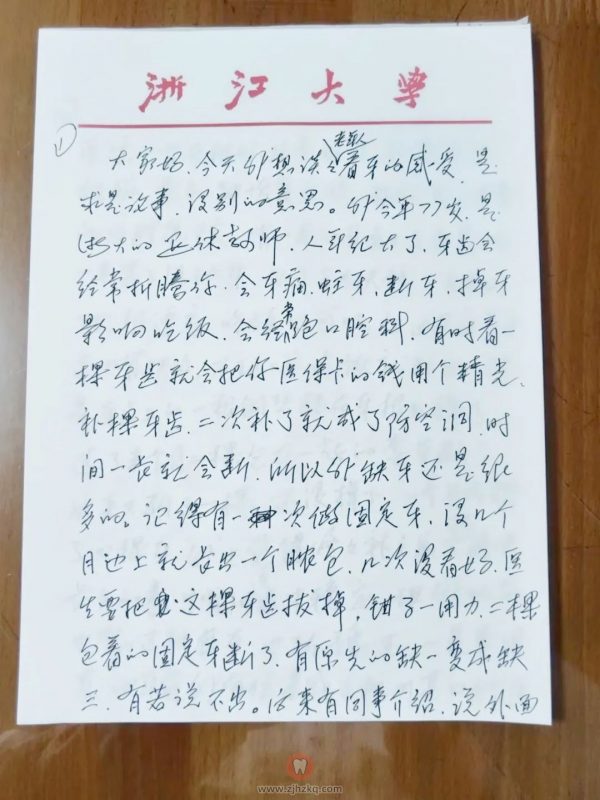 浙江大学
①
老年人
大家好、今天我想谈之看牙的感受,是
求是说事,没别的意思。我今年77岁,是
浙大的退休教师,人年纪大了,牙齿会
经常折腾你,会牙痛、蛀牙、断牙、掉牙
影响吃饭,会经常跑口腔科,有时看一
棵牙齿就会把你医保卡的钱用个精光、
补棵牙齿,二次补了就成了防空洞,时
间一长就会断,所以我缺牙还是很
多的。记得有一次做固定牙,没几个
月边上就长出一个脓包,几次没看好,医
生要把这棵牙齿拔掉,钳子一用力,二棵
包着的固定牙断了,有原先的缺一变成缺
三,有苦说不出。后来有同事介绍,说外面
www.zjhzkq.com